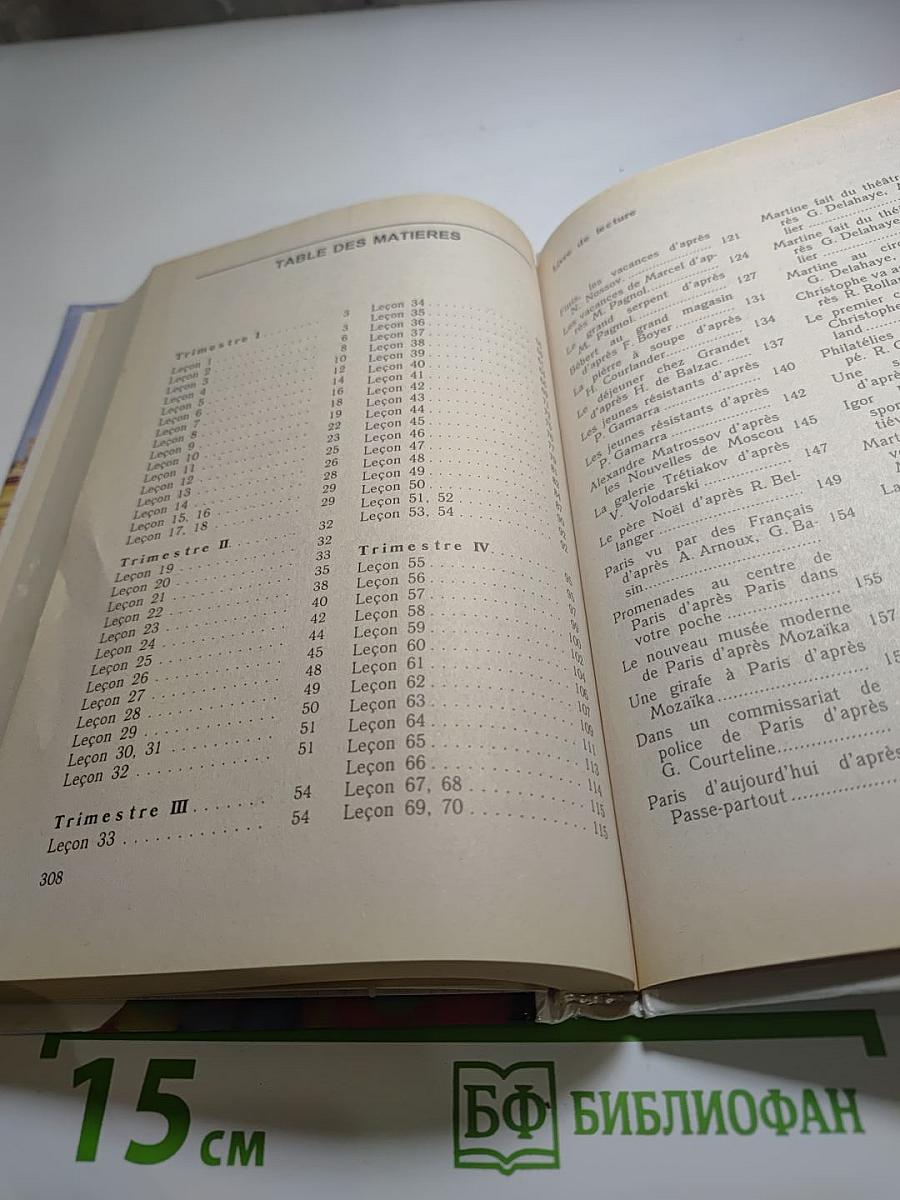 TABLE DES MATIERES
Trimestre I 3
Leçon 1 3
Leçon 2 6
Leçon 3 8
Leçon 4 10
Leçon 5 12
Leçon 6 14
Leçon 7 16
Leçon 8 18
Leçon 9 19
Leçon 10 22
Leçon 11 23
Leçon 12 25
Leçon 13 26
Leçon 14 28
Leçon 15, 16 29
Leçon 17, 18 29
Trimestre II 32
Leçon 19 32
Leçon 20 33
Leçon 21 35
Leçon 22 38
Leçon 23 40
Leçon 24 42
Leçon 25 44
Leçon 26 45
Leçon 27 48
Leçon 28 49
Leçon 29 50
Leçon 30, 31 51
Leçon 32 51
Trimestre III 54
Leçon 33 54
308
Leçon 34
Leçon 35
Leçon 36
Leçon 37
Leçon 38
Leçon 39
Leçon 40
Leçon 41
Leçon 42
Leçon 43
Leçon 44
Leçon 45
Leçon 46
Leçon 47
Leçon 48
Leçon 49
Leçon 50
Leçon 51, 52
Leçon 53, 54
Trimestre IV
Leçon 55
Leçon 56
Leçon 57
Leçon 58
Leçon 59
Leçon 60
Leçon 61
Leçon 62
Leçon 63
Leçon 64
Leçon 65
Leçon 66
Leçon 67, 68
Leçon 69, 70 115
Livre de lecture
Finis, les vacances d'après
N. Nossov 121
Les vacances de Marcel d'ap-
rès M. Pagnol 124
Le grand serpent d'après
M. Pagnol 127
Bébert au grand magasin
d'après F. Boyer 131
La pierre à soupe d'après
H. Courlander 134
Le déjeuner chez Grandet
d'après H. de Balzac 137
Les jeunes résistants d'après
P. Gamarra 140
Les jeunes résistants d'après
P. Gamarra 142
Alexandre Matrossov d'après
les Nouvelles de Moscou 145
La galerie Trétiakov d'après
V. Volodarski 147
Le père Noël d'après R. Bel-
langer 149
Paris vu par des Français
d'après A. Arnoux, G. Ba-
sin 154
Promenades au centre de
Paris d'après Paris dans
votre poche 155
Le nouveau musée moderne
de Paris d'après Mozaïka 157
Une girafe à Paris d'après
Mozaïka
Dans un commissariat de
police de Paris d'après
G. Courteline
Paris d'aujourd'hui d'après
Passe-partout
Martine fait du théâtr
rès G. Delahaye,
lier
Martine fait du thé
rès G. Delahaye
lier
Martine au cir
G. Delahaye,
Christophe va a
rès R. Rollan
Le premier c
Christophe
land
Philatélies
pé. R. G
Une s
d'aprè
Igor
spor
tiév
Mart
La
15 см
БФ БИБЛИОФАН